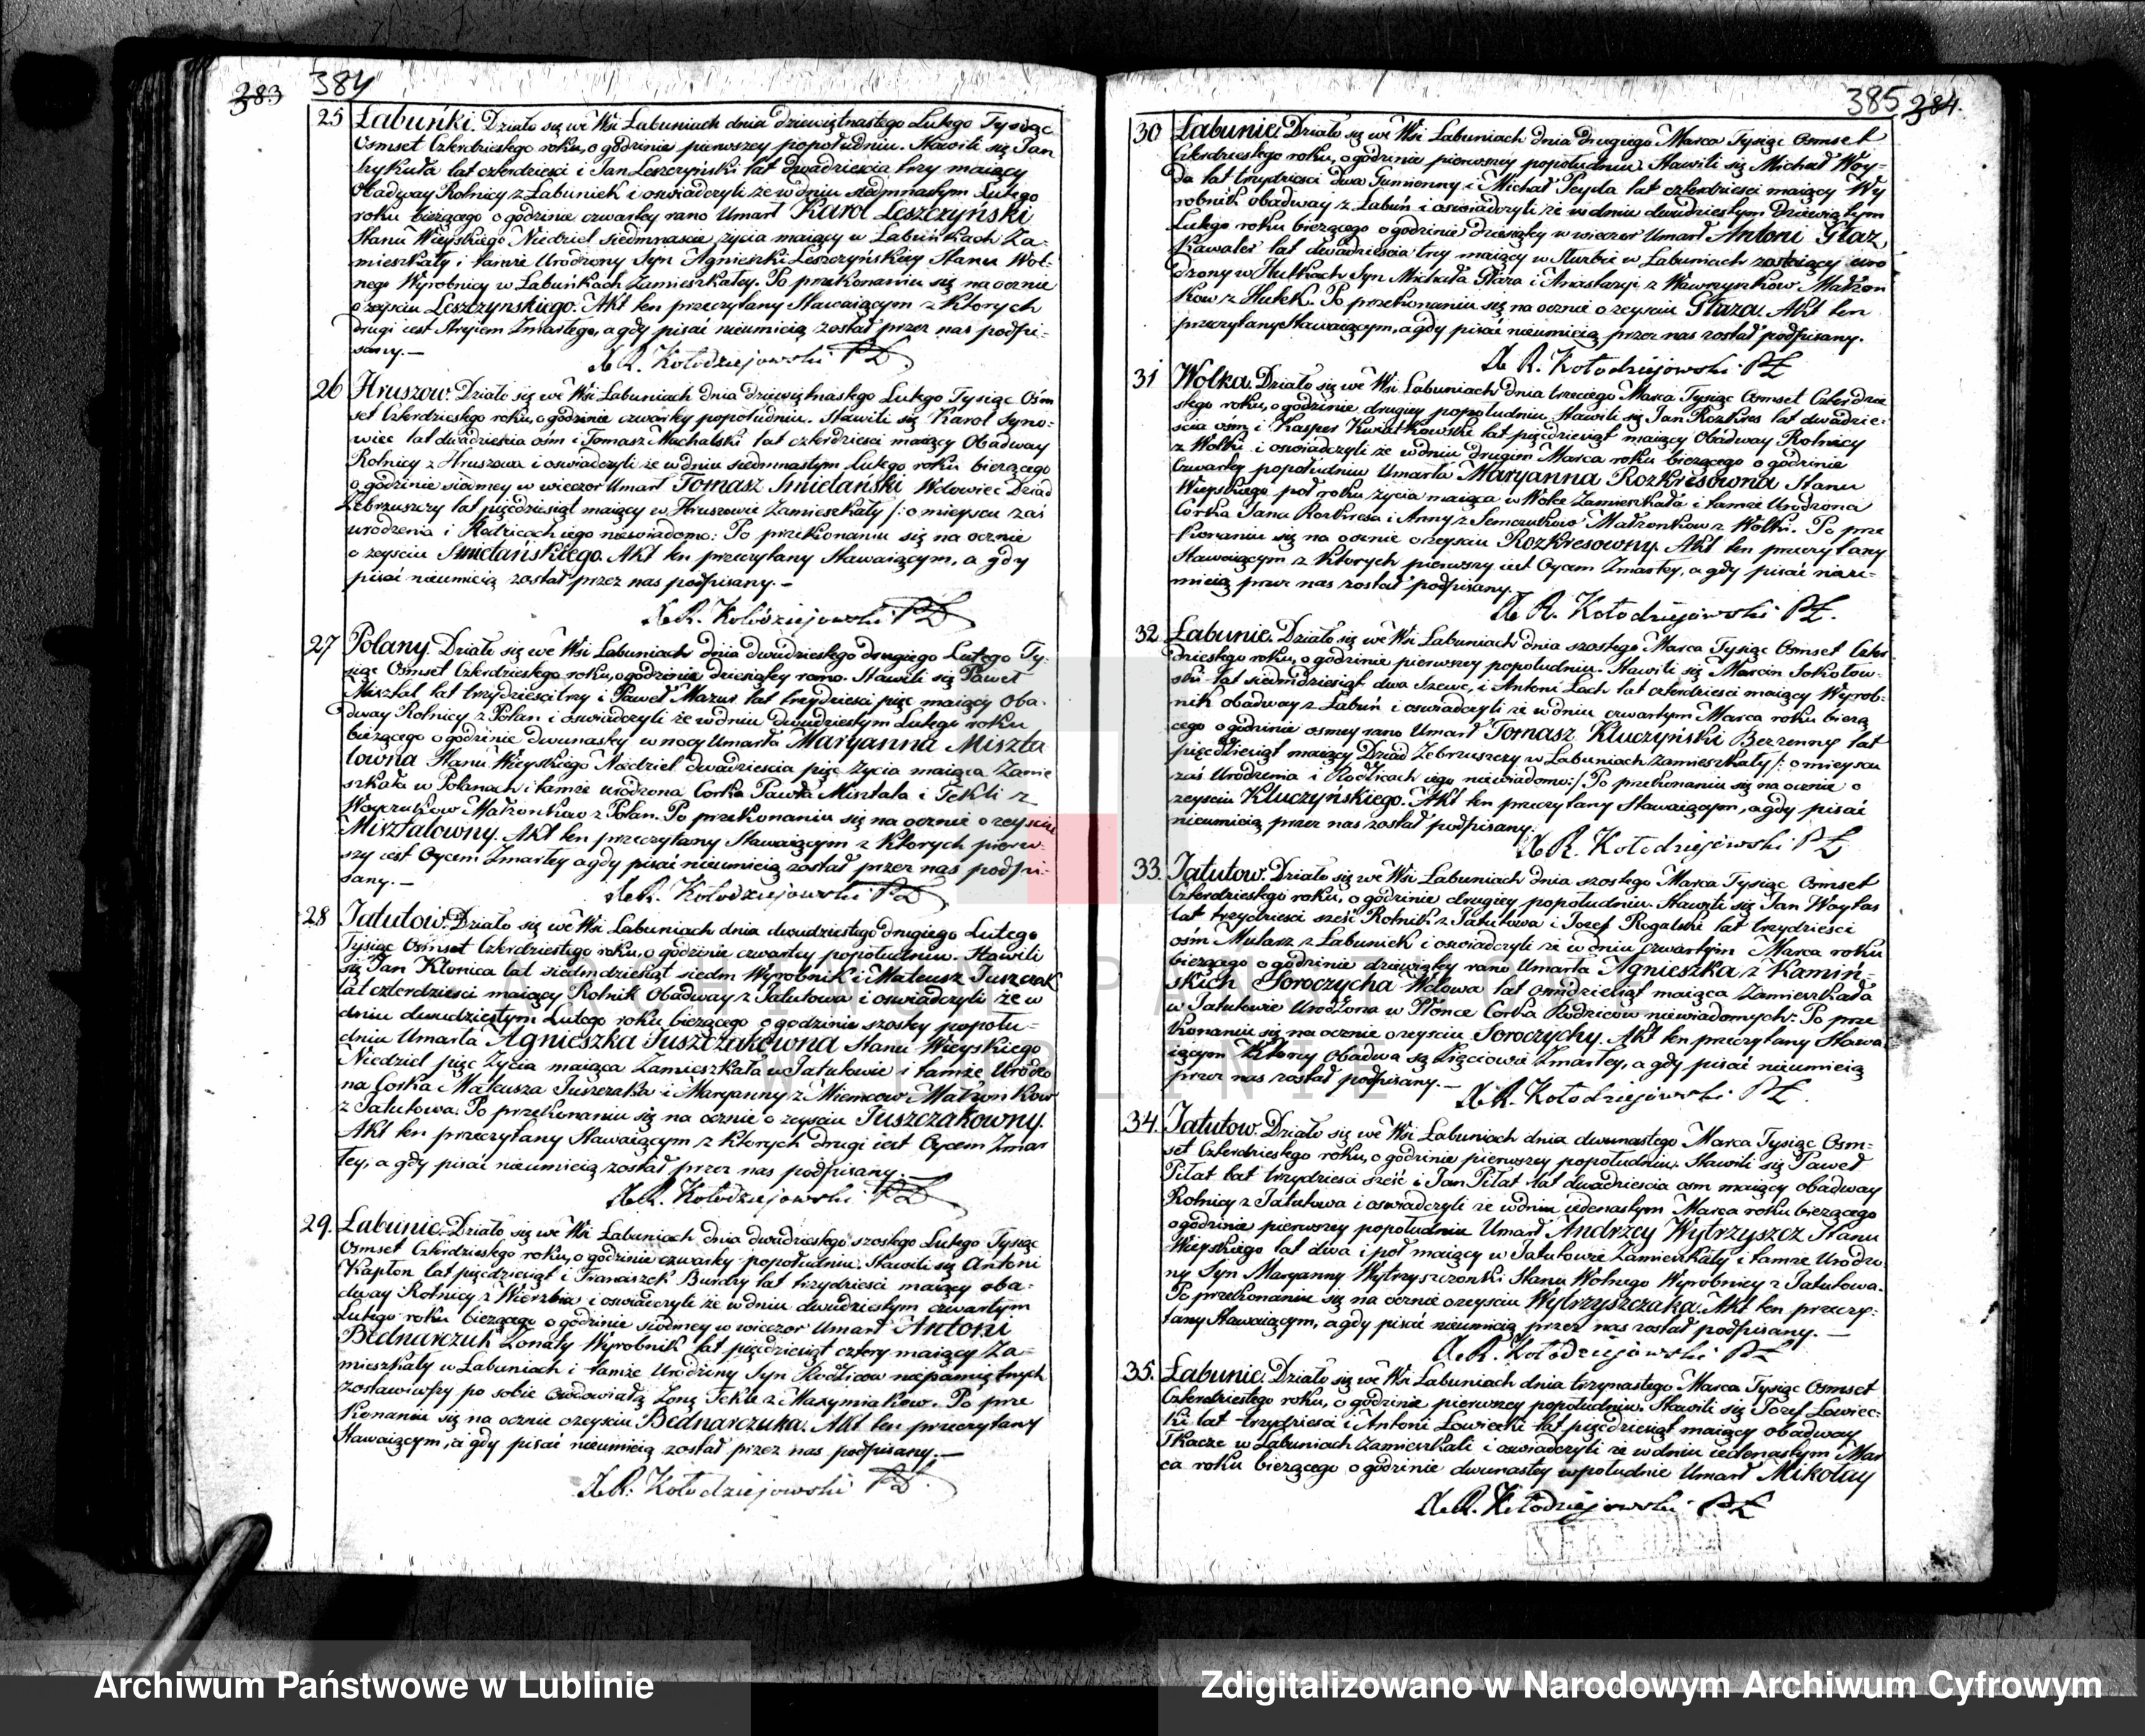 383 384
25 Łabuńki. Działo się we Wsi Łabuniach dnia dziewiętnastego Lutego Tysiąc
Osmset Czterdziestego roku, o godzinie pierwszey popołudniu. Stawili się Jan
lat czterdziesci i Jan Leszczyński lat dwadziescia trzy maiący
Obadway Rolnicy z Łabuniek i oswiadczyli że w dniu siedmnastym Lutego
roku bieżącego o godzinie czwartey rano Umarł Karol Leszczyński
Stanu Wieyskiego Niedziel siedmnascie życia maiący w Łabuńkach Za-
mieszkały i tamże Urodzony Syn Agnieszki Leszczyńskiey Stanu Wol-
nego Wyrobnicy w Łabuńkach Zamieszkałey. Po przekonaniu się na ocznie
o zeysciu Leszczynskiego. Akt ten przeczytany Stawaiącym z których
drugi iest Stryiem Zmarłego, a gdy pisać nieumieią został przez nas podpi-
sany.—
X. R. Kołodziejowski PŁ
26 Hruszow. Działo się we Wsi Łabuniach dnia dziewiętnastego Lutego Tysiąc Osm
set Czterdziestego roku, o godzinie czwartey popołudniu. Stawili się Karol Syno-
wiec lat dwadziescia osm i Tomasz Machalski lat czterdziesci maiący Obadway
Rolnicy z Hruszowa i oswiadczyli że w dniu siedmnastym Lutego roku bieżącego
o godzinie siodmey w wieczor Umarł Tomasz Smietański Wdowiec Dziad
Żebrzuszczy lat pięćdziesiąt maiący w Hruszowie Zamieszkały /: o mieyscu zaś
urodzenia i Rodzicach iego niewiadomo: Po przekonaniu się na ocznie
o zeysciu Smietańskiego. Akt ten przeczytany Stawaiącym, a gdy
pisać nieumieią został przez nas podpisany.—
X. R. Kołodziejowski PŁ
27 Polany. Działo się we Wsi Łabuniach dnia dwudziestego drugiego Lutego Ty-
siąc Osmset Czterdziestego roku, o godzinie dziesiątey rano. Stawili się Paweł
Misztal lat trzydziesci trzy i Paweł Mazur lat trzydziesci pięc maiący Oba-
dway Rolnicy z Polan i oswiadczyli że w dniu dwudziestym Lutego roku
bieżącego o godzinie dwunastey w nocy Umarła Maryanna Miszta
lowna Stanu Wieyskiego Niedziel dwadziescia pięc życia maiąca Zamie
szkała w Polanach i tamże urodzona Corka Pawła Misztala i Tekli z
Małżonkow z Polan. Po przekonaniu się na ocznie o zeysciu
Misztalowny. Akt ten przeczytany Stawaiącym z których pierw-
szy iest Oycem Zmarłey a gdy pisać nieumieią został przez nas podpi-
sany.—
X. R. Kołodziejowski PŁ
28 Jatutow. Działo się we Wsi Łabuniach dnia dwudziestego drugiego Lutego
Tysiąc Osmset Czterdziestego roku, o godzinie czwartey popołudniu. Stawili
się Jan Kłonica lat siedmdziesiąt siedm Wyrobnik i Mateusz Juszczak
lat czterdziesci maiący Rolnik Obadway z Jatutowa i oswiadczyli że w
dniu dwudziestym Lutego roku bieżącego o godzinie szostey popołu-
dniu Umarła Agnieszka Juszczakowna Stanu Wieyskiego
Niedziel pięc Życia maiąca Zamieszkała w Jatutowie i tamże Urodzo
na Corka Mateusza Juszczaka i Maryanny z Miemcow Małżonkow
z Jatutowa. Po przekonaniu się na ocznie o zeysciu Juszczakowny.
Akt ten przeczytany Stawaiącym z których drugi iest Oycem Zmar
łey, a gdy pisać nieumieią został przez nas podpisany.
X. R. Kołodziejowski PŁ
29. Łabunie. Działo się we Wsi Łabuniach dnia dwudziestego szostego Lutego Tysiąc
Osmset Czterdziestego roku, o godzinie czwartey popołudniu. Stawili się Antoni
Kapłon lat pięcdziesiąt i Franciszek Burdzy lat trzydziesci maiący oba-
dway Rolnicy z Wierzbia i oswiadczyli że w dniu dwudziestym czwartym
Lutego roku bieżącego o godzinie siodmey w wieczor Umarł Antoni
Bednarczuk Żonaty Wyrobnik lat pięcdziesiąt cztery maiący Za-
mieszkały w Łabuniach i tamże Urodziny Syn Rodzicow niepamiętnych
zostawiwszy po sobie Owdowiałą Żonę Teklę z Maxymiakow. Po prze
konaniu się na ocznie o zeysciu Bednarczuka. Akt ten przeczytany
Stawaiącym, a gdy pisać nieumieią został przez nas podpisany.—
X. R. Kołodziejowski PŁ.
385 384.
30 Łabunie. Działo się we Wsi Łabuniach dnia drugiego Marca Tysiąc Osmset
Czterdziestego roku, o godzinie pierwszey popołudniu. Stawili się Michał Woy-
da lat trzydziesci dwa Gumienny i Michał Peyda lat czterdziesci maiący Wy
robnik obadway z Łabuń i oswiadczyli że w dniu dwudziestym dziewiątym
Lutego roku bieżącego o godzinie dziesiątey w wieczor Umarł Antoni Głaz
Kawaler lat dwadziescia trzy maiący w Służbie w Łabuniach zostaiący uro
dzony w Hutkach Syn Michała Głaza i Anastazyi z Wawryszkow Małżon
kow z Hutek. Po przekonaniu się na ocznie o zeysciu Głaza. Akt ten
przeczytany Stawaiącym, a gdy pisać nieumieią, przez nas został podpisany.
X. R. Kołodziejowski PŁ
31 Wolka. Działo się we Wsi Łabuniach dnia trzeciego Marca Tysiąc Osmset Czterdzie
stego roku, o godzinie drugiey popołudniu Stawili się Jan Rozkres lat dwadzie-
scia osm i Kasper Kwiatkowski lat pięcdziesiąt maiący Obadway Rolnicy
z Wolki i oswiadczyli że w dniu drugim Marca roku bieżącego o godzinie
Czwartey popołudniu Umarła Maryanna Rozkresowna Stanu
Wieyskiego poł roku życia maiąca w Wolce Zamieszkała i tamże Urodzona
Corka Jana Rozkresa i Anny z Semczukow Małżonkow z Wolki. Po prze
konaniu się na ocznie o zeysciu Rozkresowny. Akt ten przeczytany
Stawaiącym z których pierwszy iest Oycem Zmarłey, a gdy pisać nieu-
mieią przez nas został podpisany.
X. R. Kołodziejowski PŁ.
32 Łabunie. Działo się we Wsi Łabuniach dnia szostego Marca Tysiąc Osmset Czter
dziestego roku, o godzinie pierwszey popołudniu. Stawili się Marcin Sokołow-
ski lat siedmdziesiąt dwa Szewc, i Antoni Lach lat czterdziesci maiący Wyrob-
nik obadway z Łabuń i oswiadczyli że w dniu czwartym Marca roku bieżą
cego o godzinie osmey rano Umarł Tomasz Kluczyński Bezżenny lat
pięcdziesiąt maiący Dziad Żebrzuszczy w Łabuniach Zamieszkały /: o mieyscu
zaś Urodzenia i Rodzicach iego niewiadomo:/ Po przekonaniu się na ocznie o
zeysciu Kluczyńskiego. Akt ten przeczytany Stawaiącym, a gdy pisać
nieumieią przez nas został podpisany.
X. R. Kołodziejowski PŁ
33. Jatutow. Działo się we Wsi Łabuniach dnia szostego Marca Tysiąc Osmset
Czterdziestego roku, o godzinie drugiey popołudniu. Stawili się Jan Woytas
lat trzydziesci szesć Rolnik z Jatutowa i Jozef Rogalski lat trzydziesci
osm Mularz z Łabuniek i oswiadczyli że w dniu czwartym Marca roku
bieżącego o godzinie dziewiątey rano Umarła Agnieszka z Kamiń-
skich Soroczycha Wdowa lat osmdziesiąt maiąca Zamieszkała
w Jatutowie Urodzona w Płonce Corka Rodzicow niewiadomych: Po prze
konaniu się na ocznie o zeysciu Soroczychy. Akt ten przeczytany Stawa
iącym Którzy Obadwa są Zięciowie Zmarłey, a gdy pisać nieumieią
przez nas został podpisany.—
X. R. Kołodziejowski PŁ.
34. Jatutow. Działo się we Wsi Łabuniach dnia dwunastego Marca Tysiąc Osm-
set Czterdziestego roku, o godzinie pierwszey popołudniu. Stawili się Paweł
Piłat lat trzydziesci sześć i Jan Piłat lat dwadziescia osm maiący obadway
Rolnicy z Jatutowa i oswiadczyli że w dniu iedenastym Marca roku bieżącego
o godzinie pierwszey popołudniu Umarł Andrzey Wytrzyszcz Stanu
Wieyskiego lat dwa i poł maiący w Jatutowie Zamieszkały i tamże Urodzo
ny Syn Maryanny Wytrzyszczonki Stanu Wolnego Wyrobnicy z Jatutowa.
Po przekonaniu się na ocznie o zeysciu Wytrzyszczaka. Akt ten przeczy-
tany Stawaiącym, a gdy pisać nieumieią przez nas został podpisany.—
X. R. Kołodziejowski PŁ
35. Łabunie. Działo się we Wsi Łabuniach dnia trzynastego Marca Tysiąc Osmset
Czterdziestego roku, o godzinie pierwszey popołudniu. Stawili się Jozef Łowiec-
ki lat trzydziesci i Antoni Łowiecki lat pięcdziesiąt maiący obadway
Tkacze w Łabuniach Zamieszkali i oswiadczyli że w dniu iedenastym Mar
ca roku bieżącego o godzinie dwunastey w południe Umarł Mikołay
X. R. Kołodziejowski PŁ
ARCHIWUM PAŃSTWOWE
W LUBLINIE
Archiwum Państwowe w Lublinie
Zdigitalizowano w Narodowym Archiwum Cyfrowym